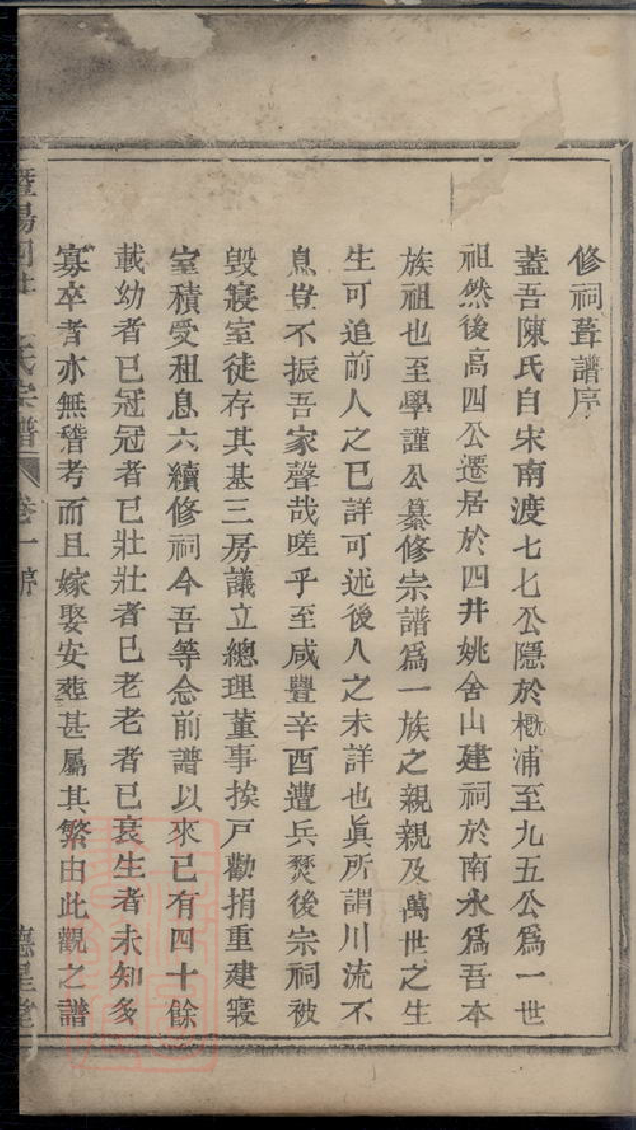 修祠葺譜序
蓋吾陳氏自宋南渡七七公隱於概浦至九五公爲一世
祖然後高四公遷居於四井姚舍山建祠於南水爲吾本
族祖也至學謹公纂修宗譜爲一族之親親及萬世之生
生可追前人之已詳可述後人之未詳也眞所謂川流不
息世不振吾家聲哉嗟乎至咸豐辛酉遭兵燹後宗祠被
毀寢室徒存其基三房議立總理董事挨戸勸捐重建寢
室積受租息六續修祠今吾等念前譜以來已有四十餘
載幼者已冠冠者已壯壯者已老老者已衰生者未知多
寡卒者亦無稽考而且嫁娶安葬甚屬其繁由此觀之譜
暨陽 氏宗譜 卷一 序 德星堂